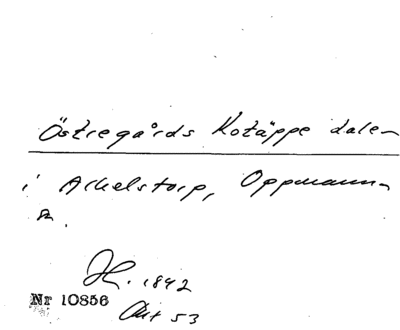 Östregårds Kotäppe dalen
i Arkelstorp, Oppmanna
sn.
H. 1842
Nr 10856
Akt 53